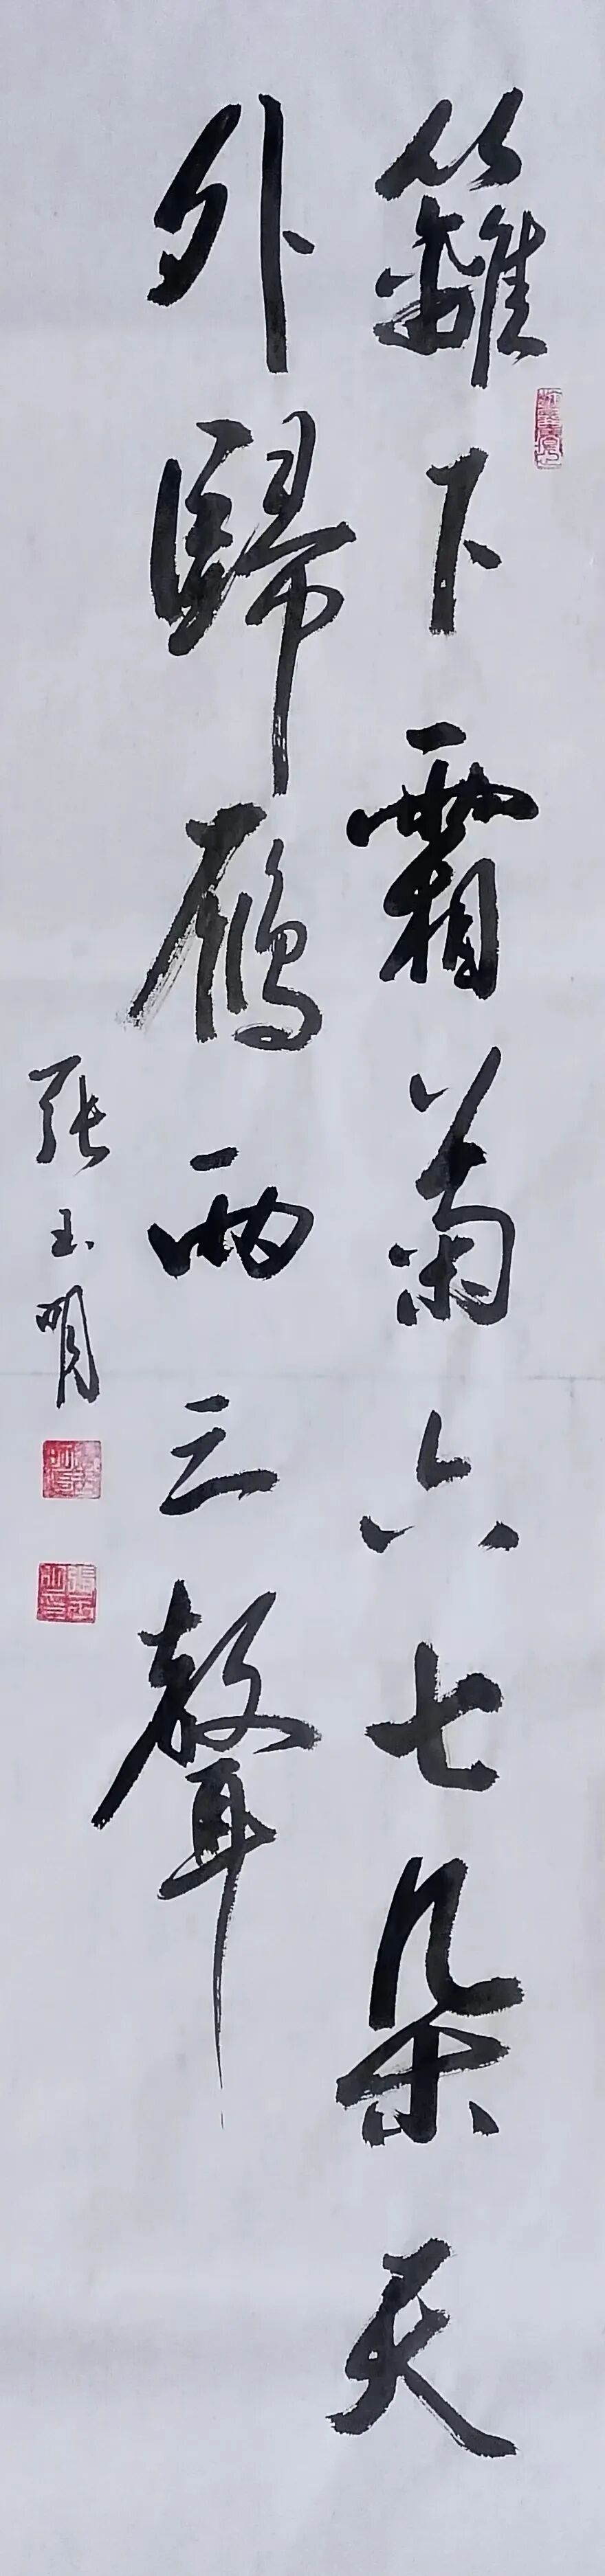 籬下霜菊六七朵天
外歸鴈兩三聲
張玉明